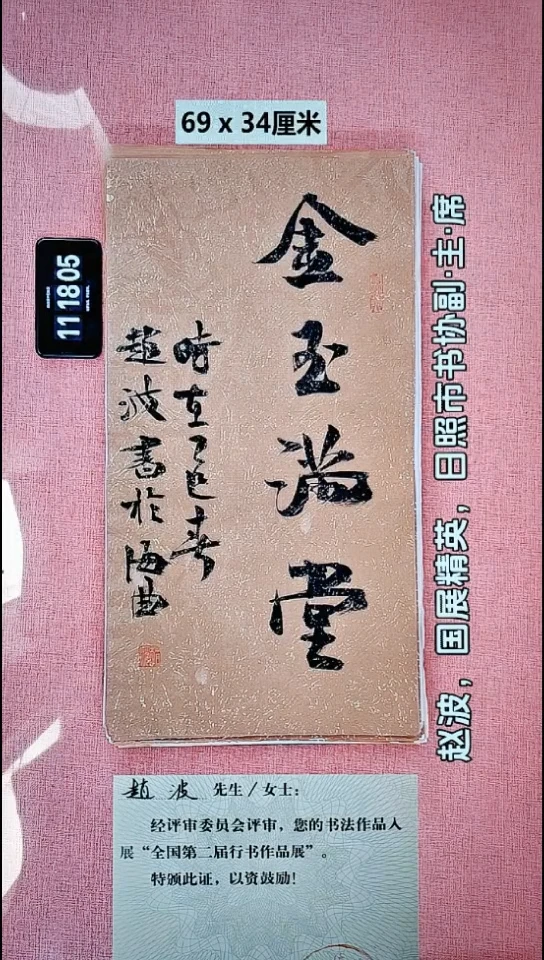 69 x 34厘米
11 18 05
金玉满堂
时在乙巳春
趙波書於海曲
赵波，国展精英，日照市书协副·主·席
趙波 先生／女士：
经评审委员会评审，您的书法作品入
展“全国第二届行书作品展”。
特颁此证，以资鼓励！